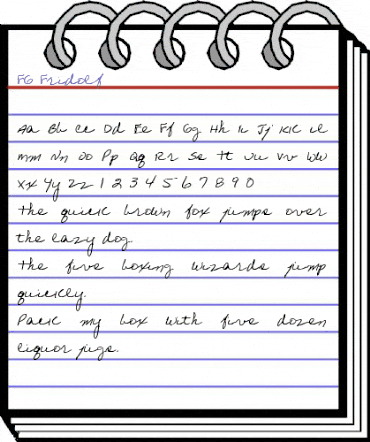 FG Fridolf
Aa Bb Cc Dd Ee Ff Gg Hh Ii Jj Kk Ll
Mm Nn Oo Pp Qq Rr Ss Tt Uu Vv Ww
Xx Yy Zz 1 2 3 4 5 6 7 8 9 0
The quick brown fox jumps over
the lazy dog.
The five boxing wizards jump
quickly.
Pack my box with five dozen
liquor jugs.